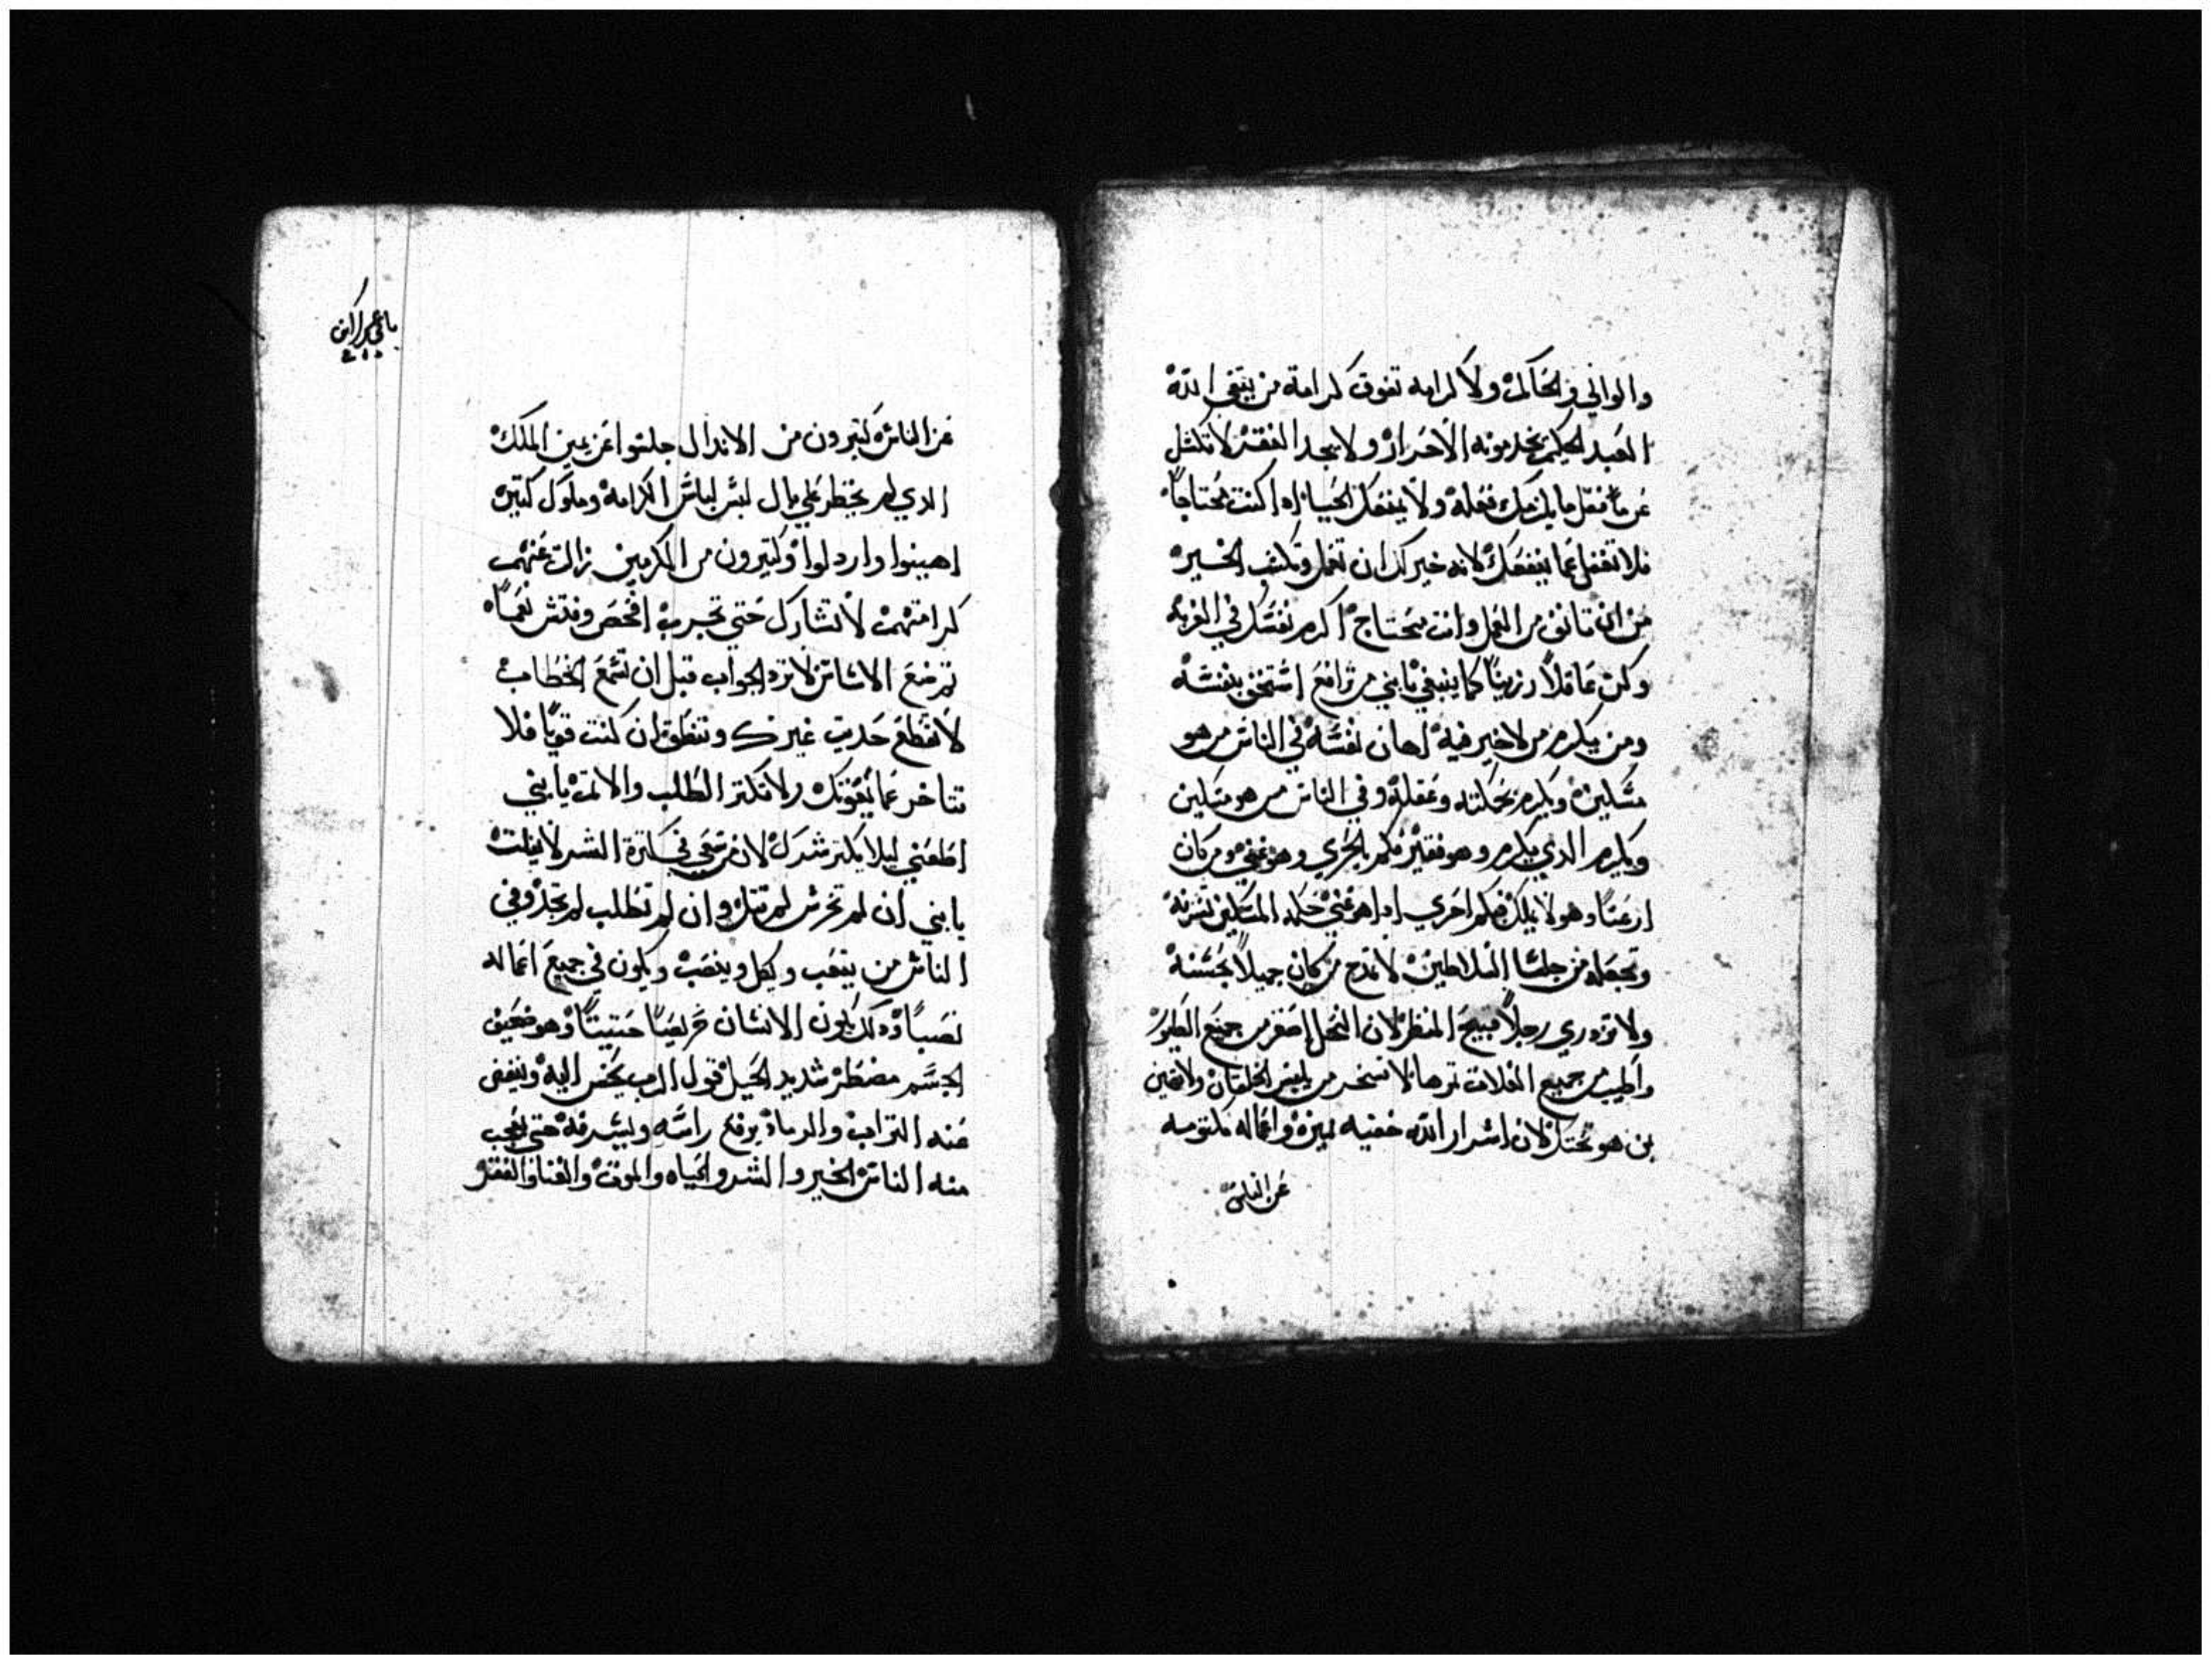 والوالي والحاكم ولا كرامه تفوق كرامة من يتقي الله
العبد الحكيم يخدمونه الاحرار ولا يجد الفقر لا تكسل
عن ما فعل ما يلزمك فعله ولا ينفعك الحيا اذا كنت محتاجاً
فلا تغفل عما ينفعك لانه خير لك ان تعمل وتكتف الخير
من ان تانف من العمل وانت محتاج اكرم نفسك في الغربه
وكن عاقلاً رزيناً كما ينبغي يابني من ترافع استخف بنفسه
ومن يكرم من لا خير فيه اهان نفسه في الناس من هو
مسكين ويكرم بحكمته وعقله وفي الناس من هو مسكين
ويكرم الذي يكرم وهو فقير فكم بالحري وهو غني ومن كان
ارعناً وهو لا يملك فكم احري اذا هو غني حكمه المسكين تشرفه
وتجعله من جلسا السلاطين لا تمدح من كان جميلاً بحسنه
ولا تزدري رجلاً قبيح المنظر لان النحل اصغر من جميع الطيور
واطيب من جميع الغلات ثمرها لا تسخر من يلبس الخلقان ولا تهين
من هو لان اسرار الله خفيه واعماله مكتومه
عن الناس
عن الناس كتيرون من الاندال جلسوا عن يمين الملك
الدي لم يخطر علي بال لبس لباس الكرامه وملوك كتير
اهينوا واردلوا وكتيرون من المكرمين زالت عنهم
كرامتهم لا تشارك حتي تجرب افحص وفتش نعماً
تم ضع الاساس لا ترد الجواب قبل ان تسمع الخطاب
لا تقطع حديت غيرك وتنطق ان كنت قوياً فلا
تتاخر عما يفوتك ولا تكتر الطلب والاتم يابني
اطعني ليلا يكتر شرك لان من سعي في كترة الشر لا يفلت
يابني ان لم تحرس لم تنل وان لم تطلب لم تجد وفي
الناس من يتعب ويكل وينصب ويكون في جميع اعماله
نصباً ودلك يكون الانسان حريصاً وهو ضعيف
الجسم مضطر شديد الحيل قول الرب يحسن اليه وينفض
عنه التراب والرماد يرفع راسه ويشرفه حتي يتعجب
منه الناس الخير والشر والحياه والموت والغنا والفقر